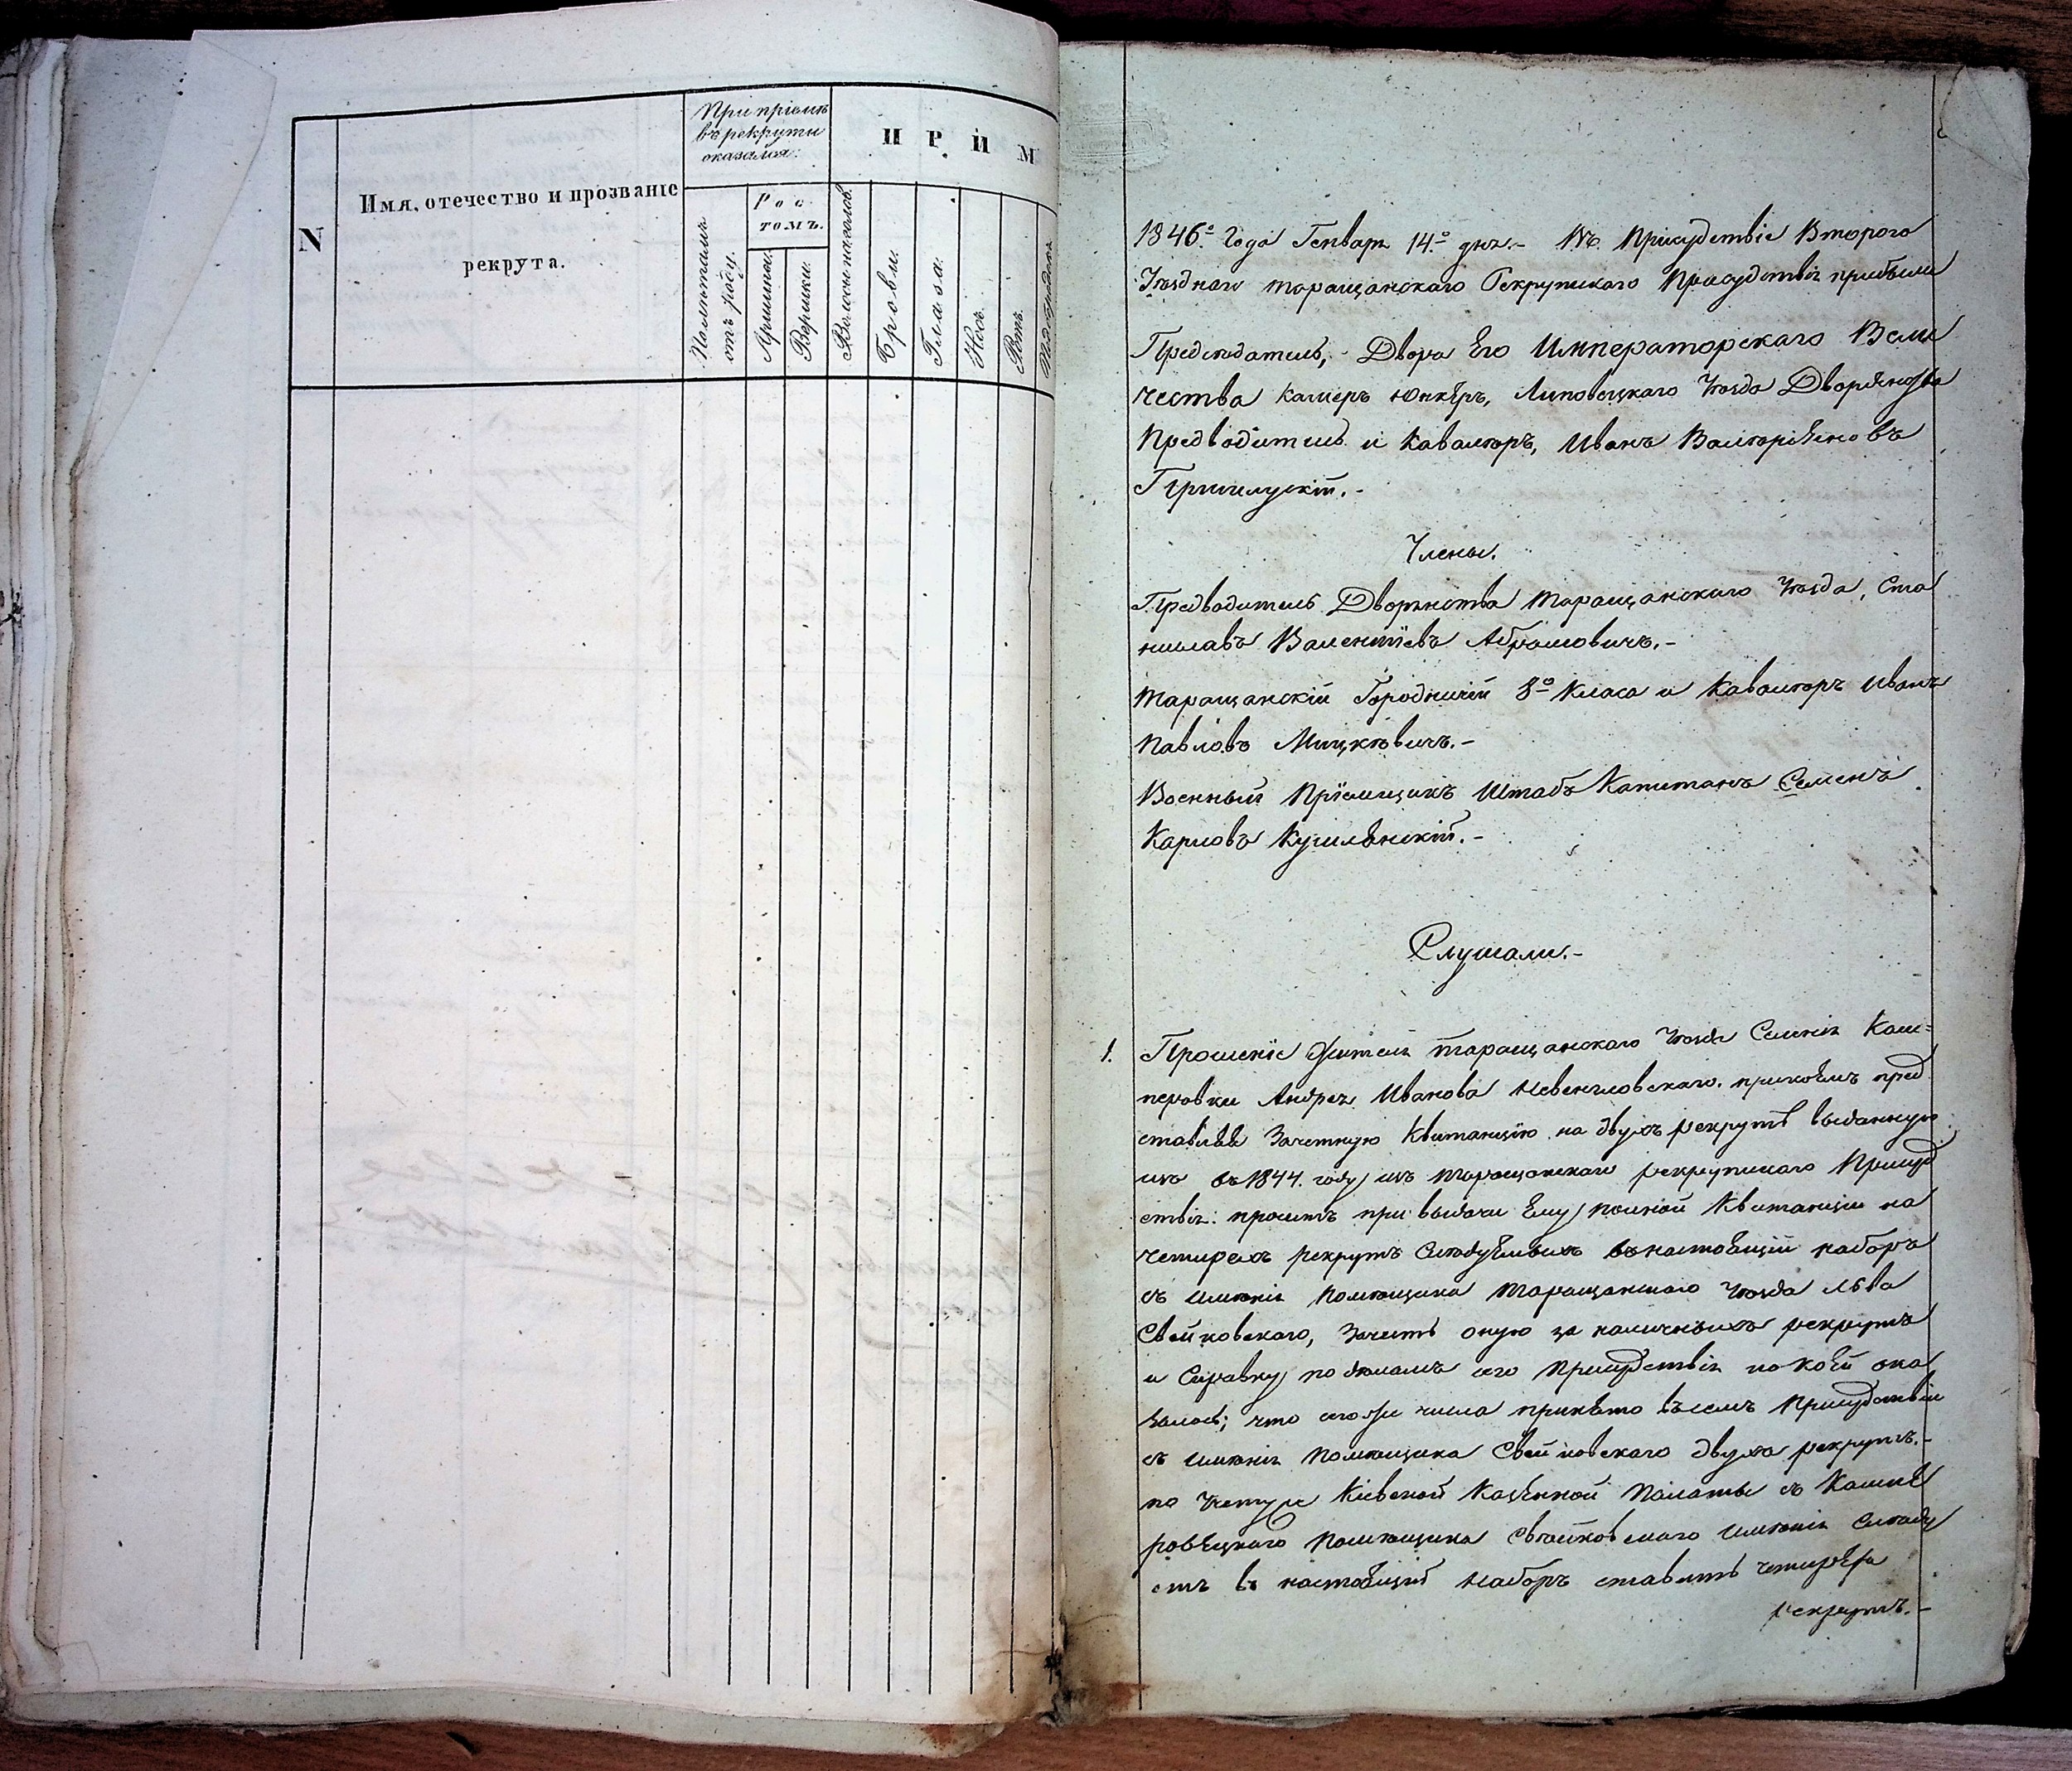 При пріемѣ
въ рекруты
оказался:
П Р И М
N
Имя, отечество и прозваніе
рекрута.
Рос
томъ.
отъ роду.
Аршины.
Вершки.
Брови.
Глаза.
Носъ.
Ротъ.
1846го Года Генваря 14го дня.- Въ Присудствіе Второго
Уѣзднаго Таращанскаго Рекрутскаго Присудствія прибыли
Предсѣдатель,- Двора Его Императорскаго Вели
чества Камеръ Юнкеръ, Липовецкаго Уѣзда Дворянства
Предводитель и Кавалеръ, Иванъ Валеріяновъ
Члены.
Предводитель Дворянства Таращанскаго Уѣзда, Ста
ниславъ Валентіевъ Абрамовичъ.-
Таращанскій Городничій 8го Класа и Кавалеръ Иванъ
Павловъ Мицкѣвичъ.-
Военный Пріемщикъ Штабъ Капитанъ Семенъ
Карловъ
Слушали.-
1. Прошеніе Жителя Таращанскаго Уѣзда Селенія Каш=
перовки Андрея Иванова прикоемъ пред
ставляя Зачетную Квитанцію на двухъ рекрутъ выданную
изъ въ 1844. году изъ Таращанскаго рекрутскаго Присуд
ствія: проситъ при выдачи Ему полной Квитанціи на
четырехъ рекрутъ Слѣдуемыхъ въ настоящій наборъ
съ имѣнія Помѣщика Таращанскаго Уѣзда Льва
Свейковскаго, Зачесть оную за наличныхъ рекрутъ
и Справку по дѣламъ сего Присудствія по коей ока
залось; что сего же числа принято въ семъ Присудствіи
съ имѣнія Помѣщика Свейковскаго двухъ рекрутъ.-
по Кіевской Казенной Палаты съ Кашпе
ровецкаго Помѣщика Свѣйковскаго имѣнія Слѣду
етъ въ настоящій наборъ ставить четырехъ
рекрутъ.-